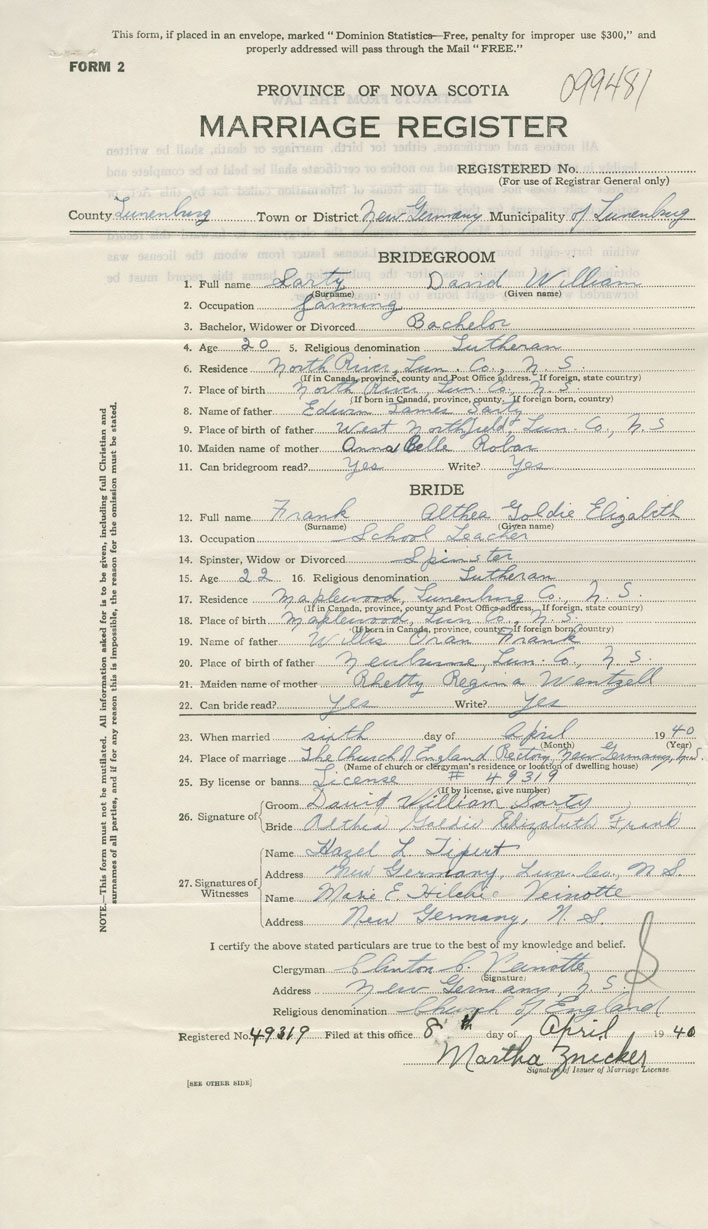 This form, if placed in an envelope, marked "Dominion Statistics—Free, penalty for improper use $300," and
properly addressed will pass through the Mail "FREE."
FORM 2
099481
PROVINCE OF NOVA SCOTIA
MARRIAGE REGISTER
REGISTERED No.
(For use of Registrar General only)
County Lunenburg Town or District New Germany Municipality of Lunenburg
BRIDEGROOM
1. Full name Sarty David William
(Surname) (Given name)
2. Occupation farming
3. Bachelor, Widower or Divorced Bachelor
4. Age 20 5. Religious denomination Lutheran
6. Residence North River, Lun. Co., N. S.
(If in Canada, province, county and Post Office address. If foreign, state country)
7. Place of birth North River, Lun. Co., N. S.
(If born in Canada, province, county. If foreign born, country)
8. Name of father Edwin James Sarty
9. Place of birth of father West Northfield, Lun. Co., N. S
10. Maiden name of mother Anna Belle Robar
11. Can bridegroom read? Yes Write? Yes
BRIDE
12. Full name Frank Althea Goldie Elizabeth
(Surname) (Given name)
13. Occupation School Teacher
14. Spinster, Widow or Divorced Spinster
15. Age 22 16. Religious denomination Lutheran
17. Residence Maplewood, Lunenburg Co., N. S.
(If in Canada, province, county and Post Office address. If foreign, state country)
18. Place of birth Maplewood, Lun. Co., N. S.
(If born in Canada, province, county. If foreign born, country)
19. Name of father Willis Oran Frank
20. Place of birth of father Lun. Co., N. S.
21. Maiden name of mother Rhetty Regina Wentzell
22. Can bride read? Yes Write? Yes
23. When married sixth day of April 1940
(Month) (Year)
24. Place of marriage The Church of England Rectory, New Germany, N.S.
(Name of church or clergyman's residence or location of dwelling house)
25. By license or banns License # 49319
(If by license, give number)
26. Signature of Groom David William Sarty
Bride Althea Goldie Elizabeth Frank
27. Signatures of Witnesses Name Hazel L. Tipert
Address New Germany, Lun. Co., N. S.
Name Marie E. Hilchie Veinotte
Address New Germany, N. S.
I certify the above stated particulars are true to the best of my knowledge and belief.
Clergyman Clinton C. Veinotte
(Signature)
Address New Germany, N. S.
Religious denomination Church of England
Registered No. 49319 Filed at this office 8th day of April 1940
Martha Zwicker
Signature of Issuer of Marriage License
[SEE OTHER SIDE]
NOTE.—This form must not be mutilated. All information asked for is to be given, including full Christian and
surnames of all parties, and if for any reason this is impossible, the reason for the omission must be stated.